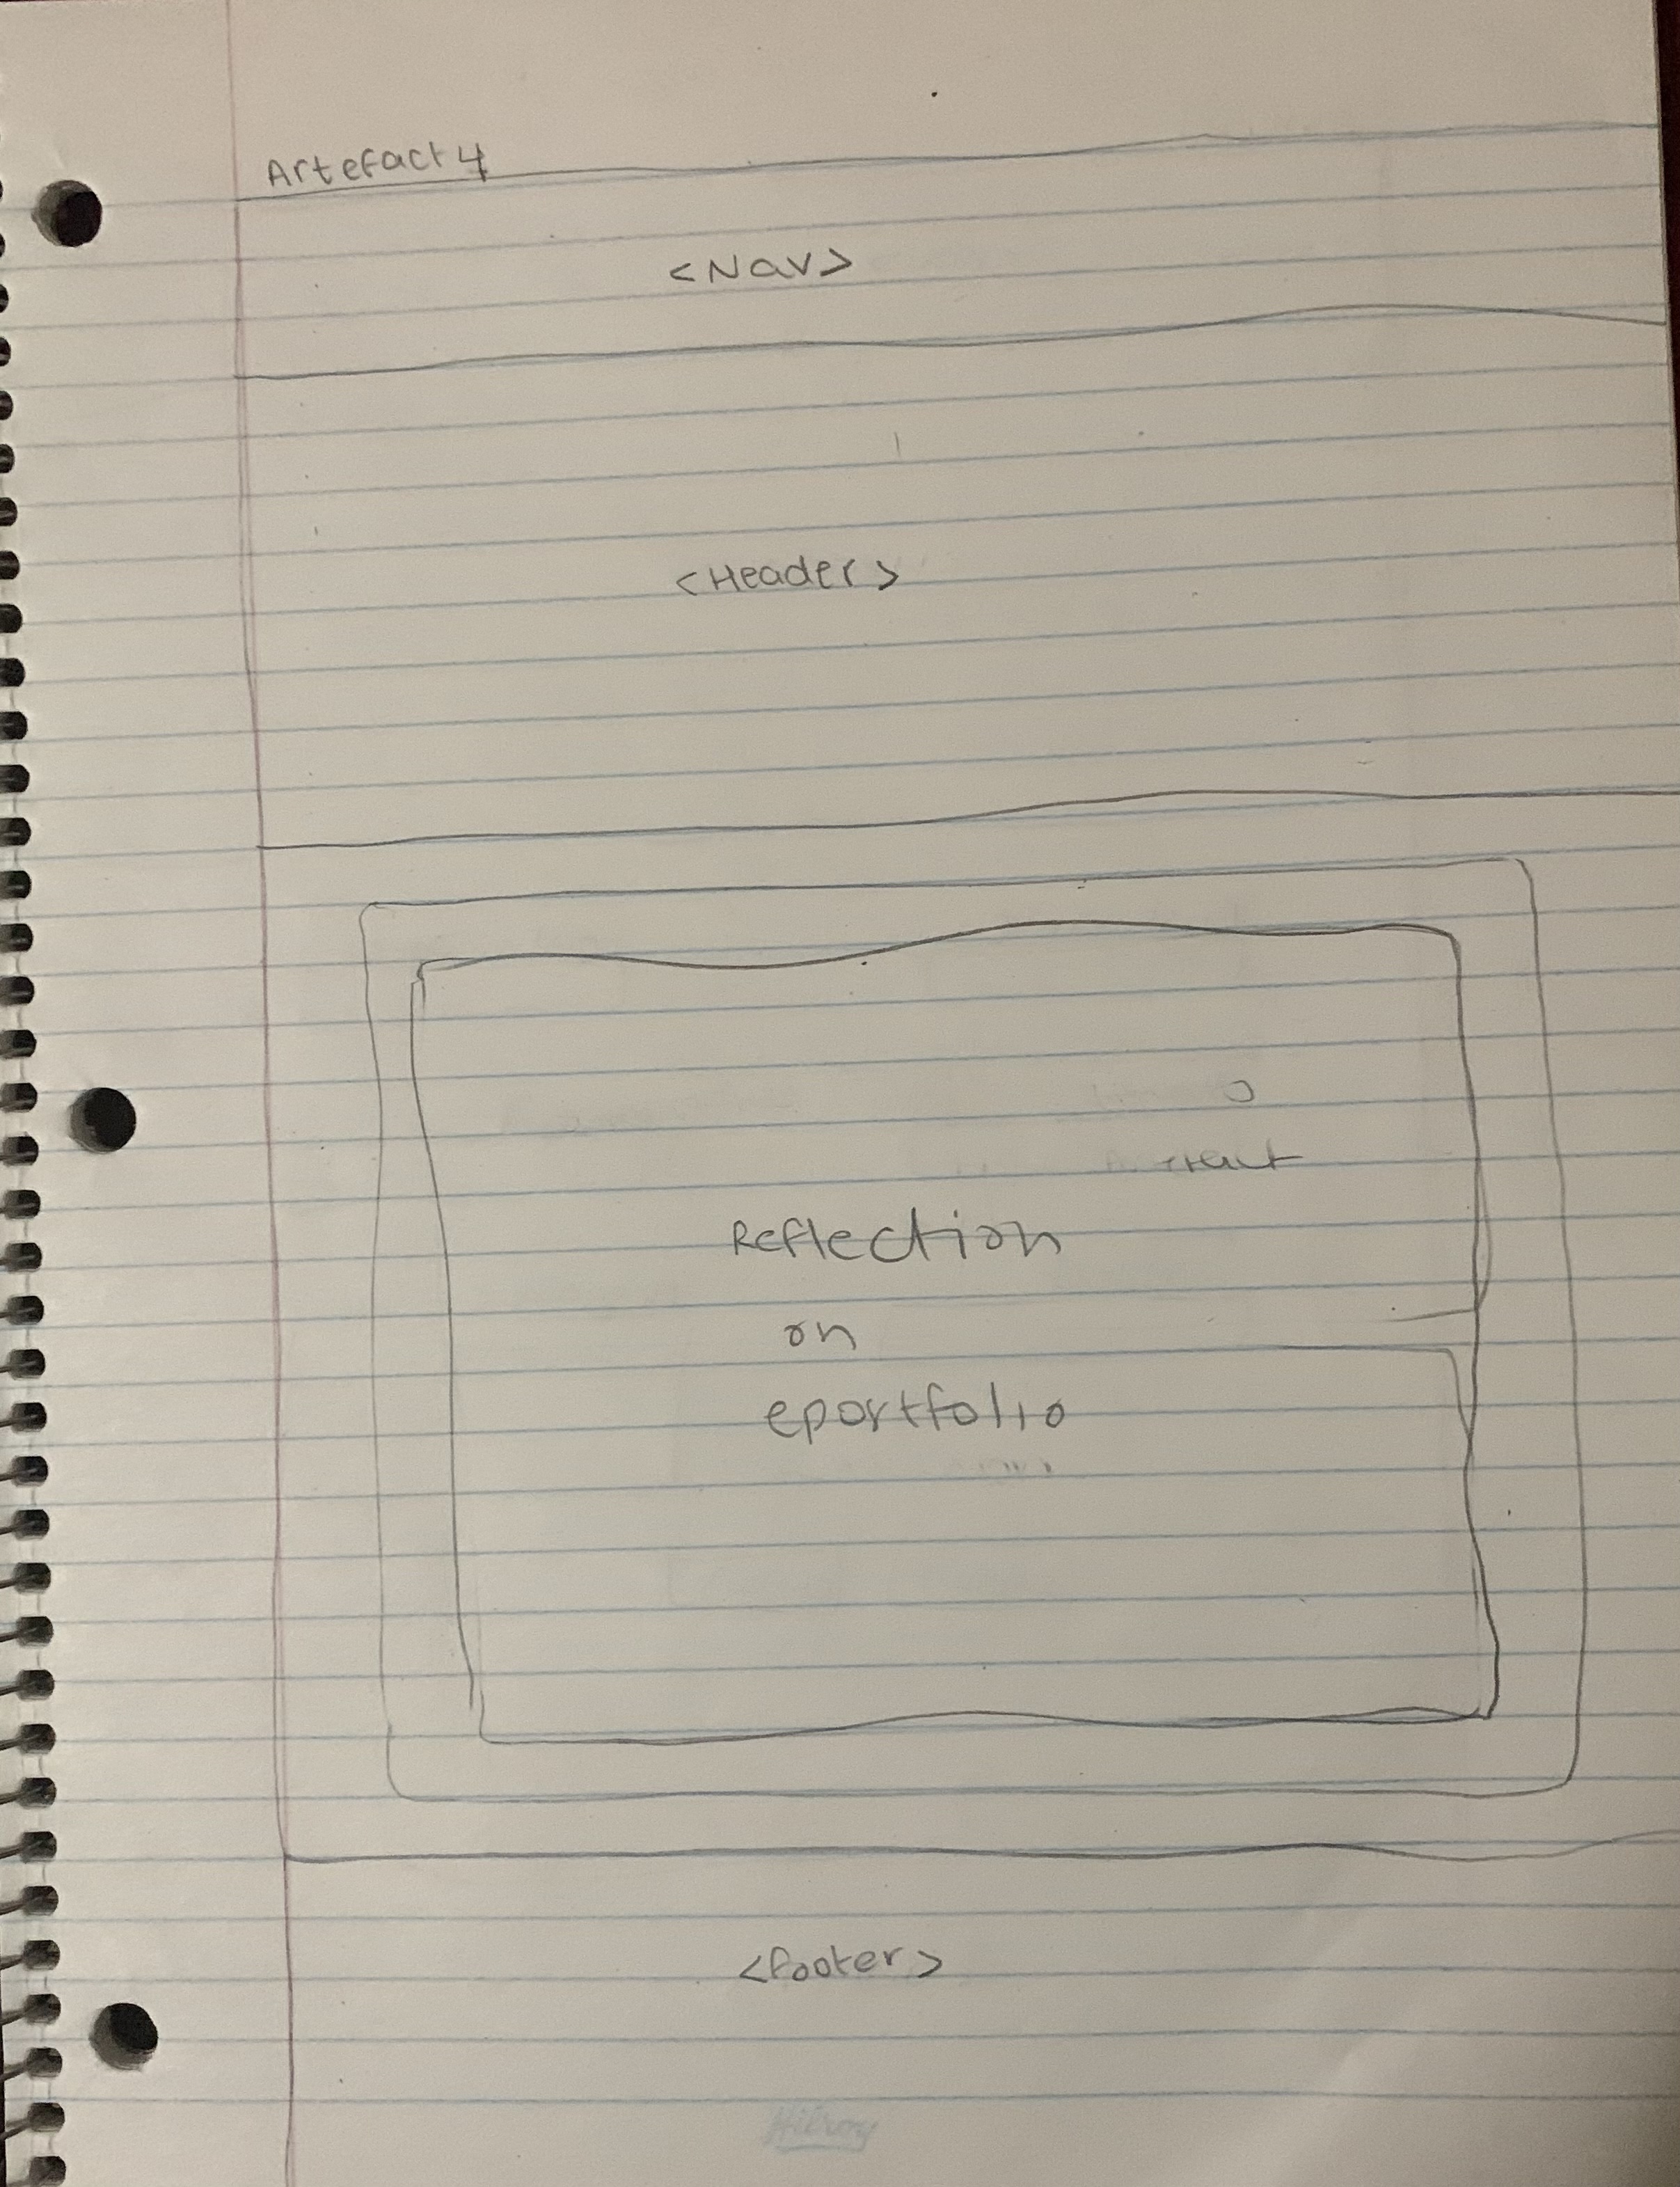 Artefact 4
<Nav>
<Header>
Reflection
on
eportfolio
<footer>
Hilroy